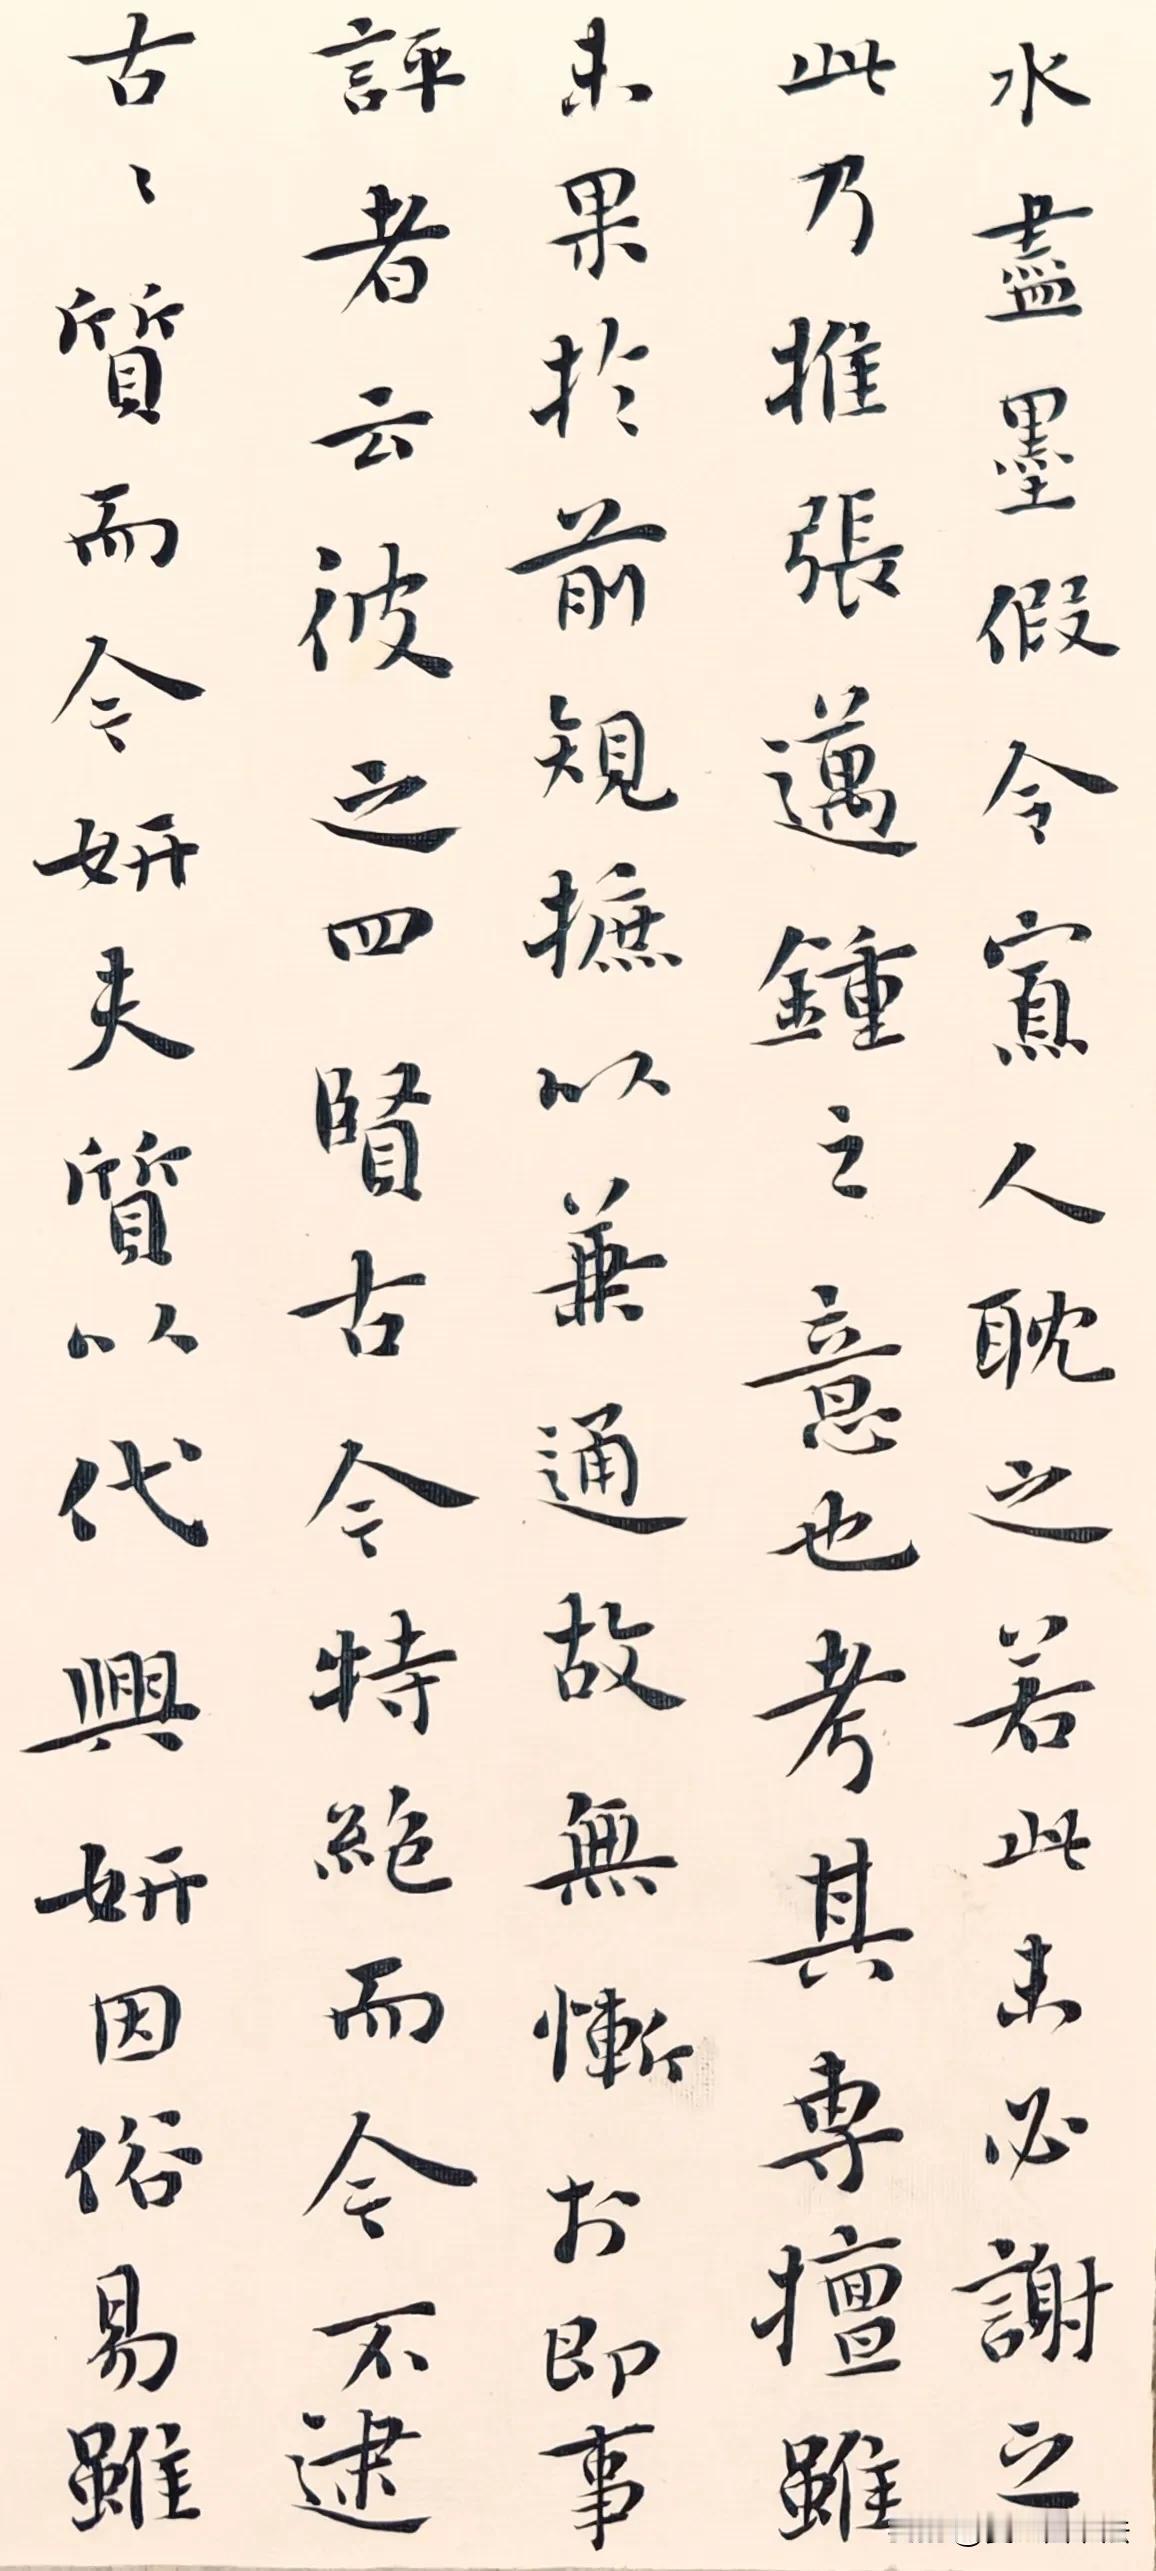 水盡墨假令寡人耽之若此未必謝之
此乃推張邁鍾之意也考其專擅雖
未果於前規摭以兼通故無慚於即事
評者云彼之四賢古今特絕而今不逮
古〻質而今妍夫質以代興妍因俗易雖